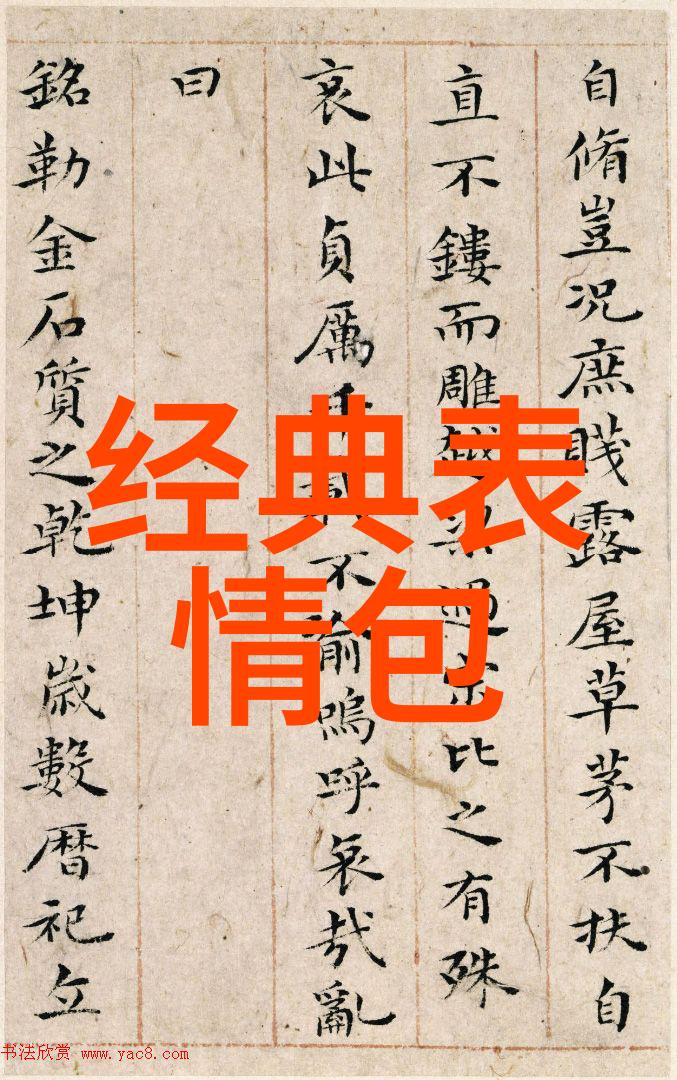 自脩豈况庶賤露屋草茅不扶自
直不鏤而雕越過比之有殊
哀此貞厲千載不渝嗚呼哀哉亂
曰
銘勒金石質之乾坤歲數暦祀立
经典表
情包
书法欣赏 www.yac8.com